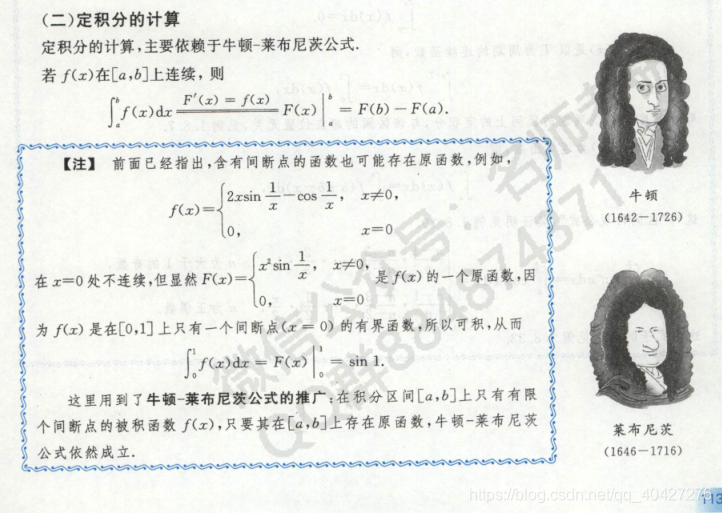 (二)定积分的计算
定积分的计算,主要依赖于牛顿-莱布尼茨公式.
若 f(x)在[a,b]上连续,则
∫_a^b f(x)dx \xlongequal{F'(x) = f(x)} F(x)|_a^b = F(b)-F(a).
【注】 前面已经指出,含有间断点的函数也可能存在原函数,例如,
f(x)={2xsin 1/x-cos 1/x, x≠0,
0, x=0
在 x=0 处不连续,但显然 F(x)={x²sin 1/x, x≠0,
0, x=0
是 f(x) 的一个原函数,因
为 f(x) 是在[0,1]上只有一个间断点(x = 0)的有界函数,所以可积,从而
∫_0^1 f(x)dx = F(x)|_0^1 = sin 1.
这里用到了牛顿-莱布尼茨公式的推广:在积分区间[a,b]上只有有限
个间断点的被积函数 f(x),只要其在[a,b]上存在原函数,牛顿-莱布尼茨
公式依然成立.
牛顿
(1642-1726)
莱布尼茨
(1646-1716)
微信公众号:名师
QQ群
113
https://blog.csdn.net/qq_40427276